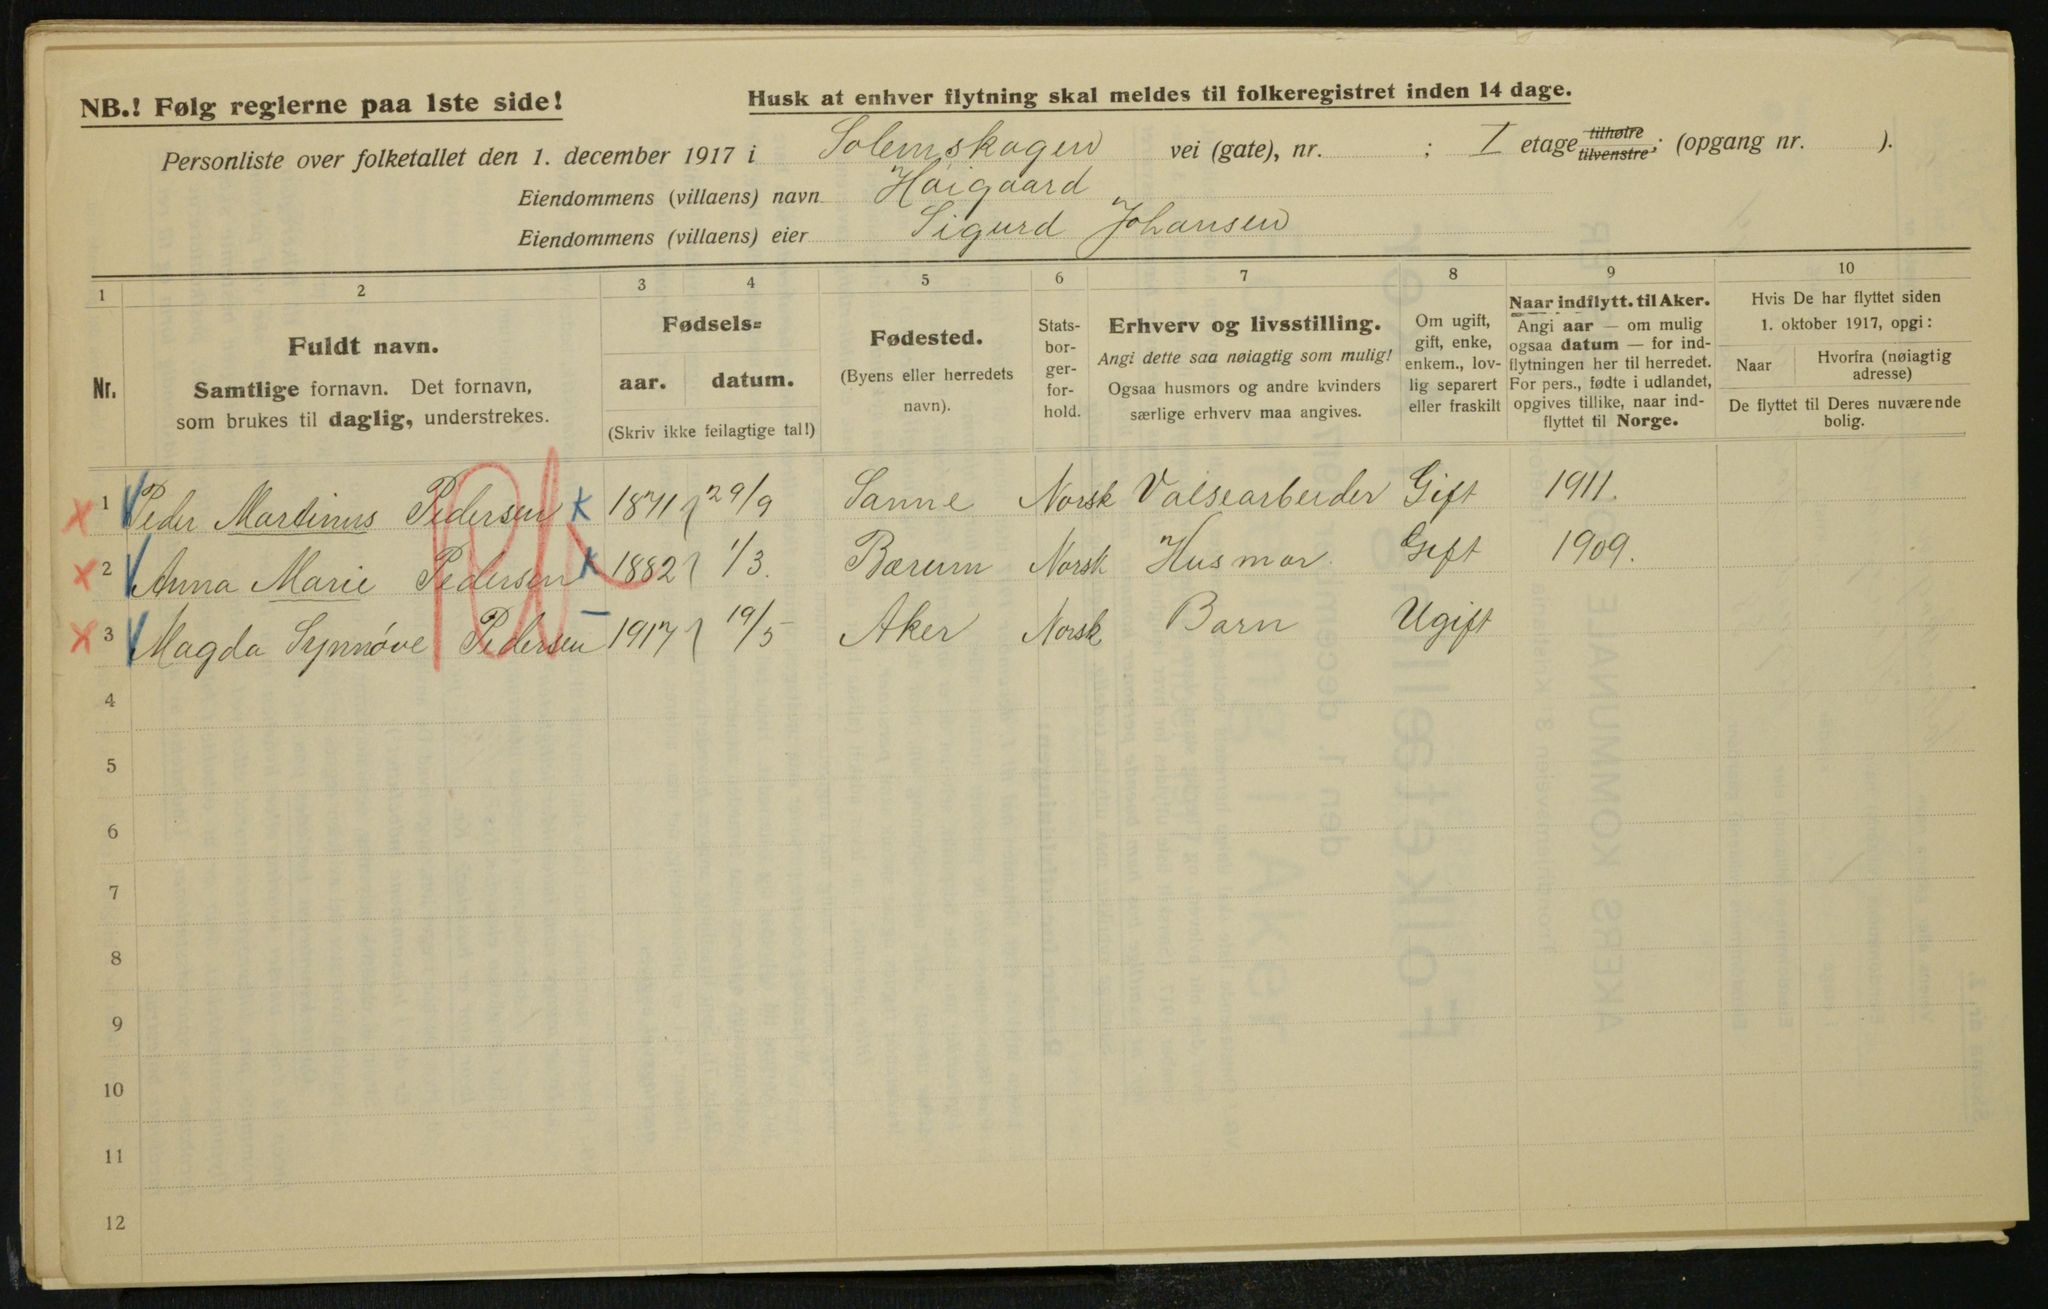 NB.! Følg reglerne paa 1ste side!
Husk at enhver flytning skal meldes til folkeregistret inden 14 dage.
Personliste over folketallet den 1. december 1917 i Solemskogen vei (gate), nr. ; I etage tilhøire tilvenstre; (opgang nr. ).
Eiendommens (villaens) navn Höigaard
Eiendommens (villaens) eier Sigurd Johansen
1 2 3 4 5 6 7 8 9 10
Nr.
Fuldt navn.
Samtlige fornavn. Det fornavn,
som brukes til daglig, understrekes.
Fødsels=
aar. datum.
(Skriv ikke feilagtige tal!)
Fødested.
(Byens eller herredets
navn).
Stats-
bor-
ger-
for-
hold.
Erhverv og livsstilling.
Angi dette saa nøiagtig som mulig!
Ogsaa husmors og andre kvinders
særlige erhverv maa angives.
Om ugift,
gift, enke,
enkem., lov-
lig separert
eller fraskilt
Naar indflytt. til Aker.
Angi aar — om mulig
ogsaa datum — for ind-
flytningen her til herredet.
For pers., fødte i udlandet,
opgives tillike, naar ind-
flyttet til Norge.
Hvis De har flyttet siden
1. oktober 1917, opgi:
Naar Hvorfra (nøiagtig
adresse)
De flyttet til Deres nuværende
bolig.
1 Peder Martinus Pedersen 1871 29/9 Sanne Norsk Valsearbeider Gift 1911.
2 Anna Marie Pedersen 1882 1/3. Bærum Norsk Husmor Gift 1909.
3 Magda Synnöve Pedersen 1917 19/5 Aker Norsk Barn Ugift
4
5
6
7
8
9
10
11
12